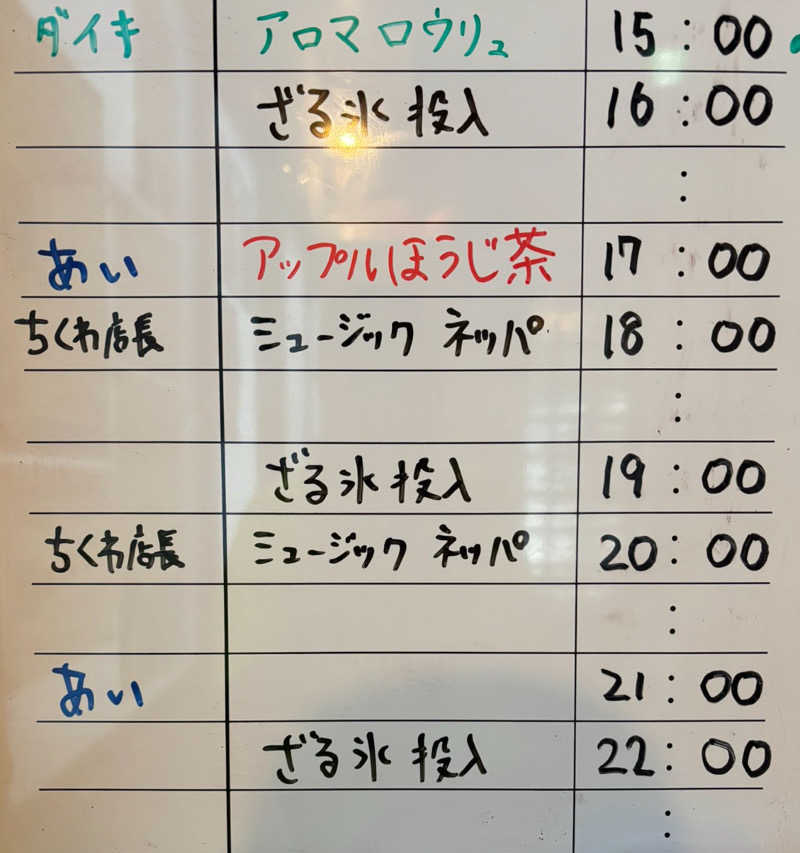 ダイキ アロマ ロウリュ 15:00
ざる氷 投入 16:00
:
あい アップルほうじ茶 17:00
ちくわ店長 ミュージック ネッパ 18:00
:
ざる氷 投入 19:00
ちくわ店長 ミュージック ネッパ 20:00
:
あい 21:00
ざる氷 投入 22:00
: